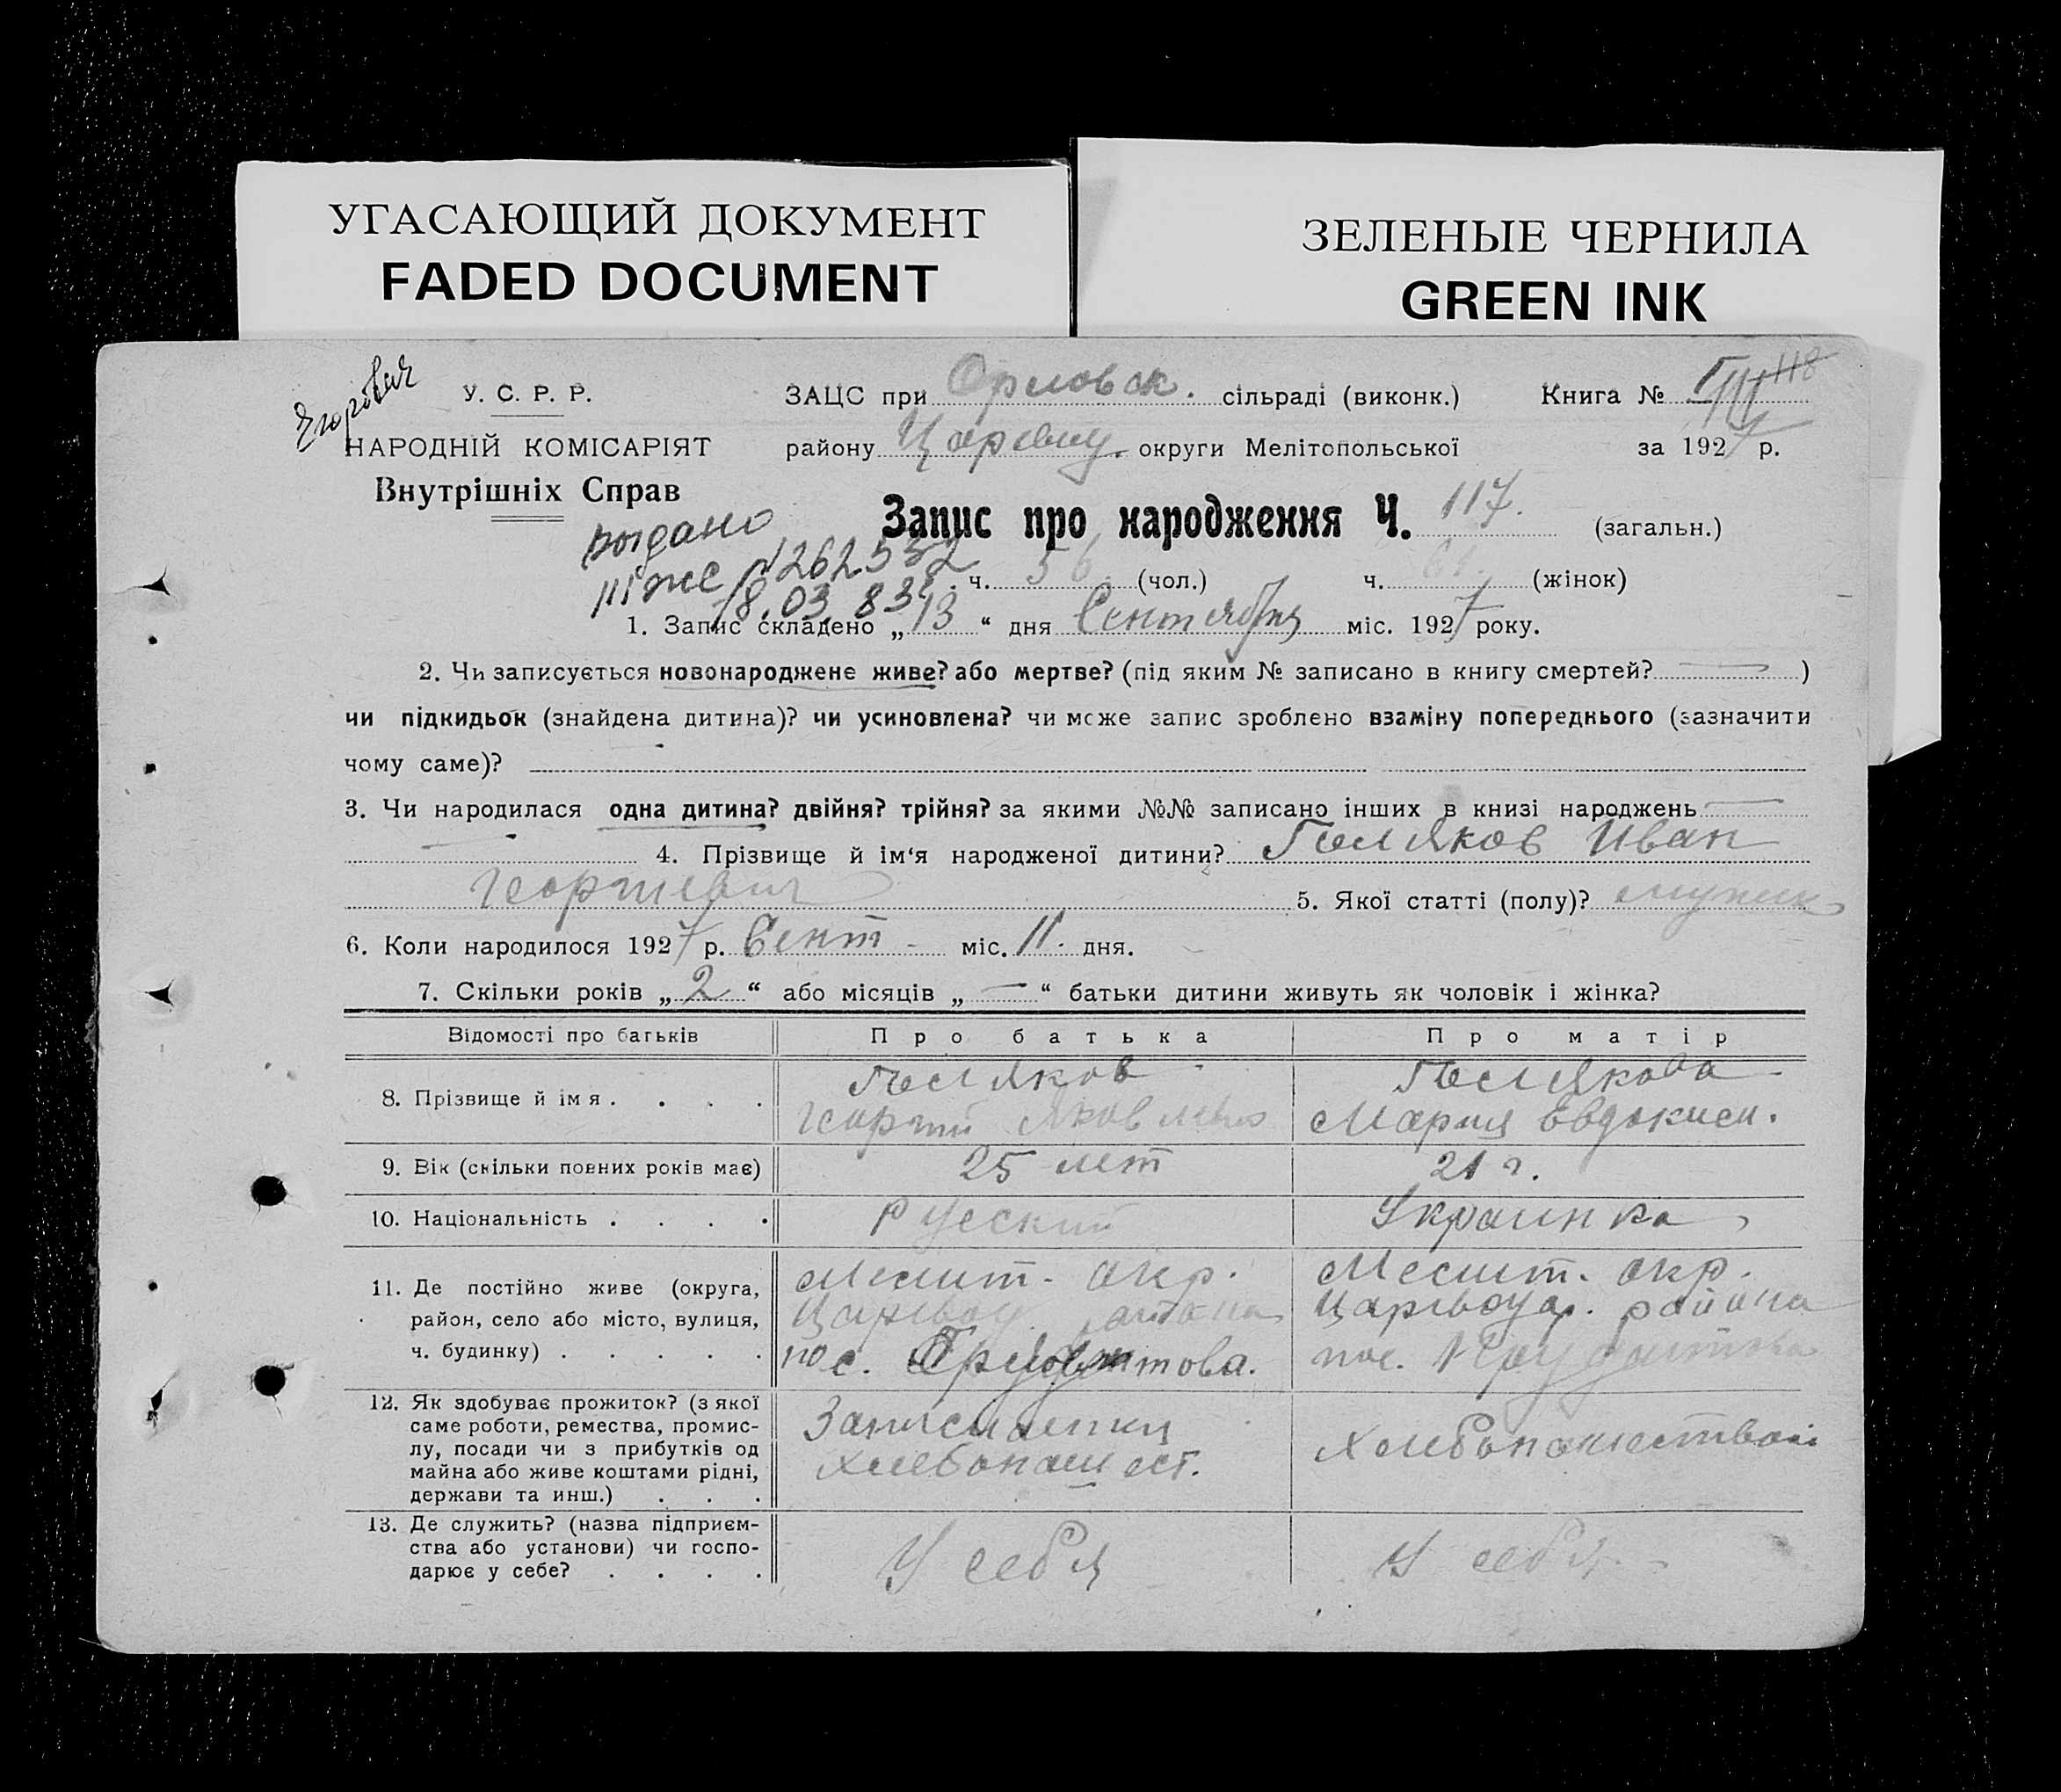 УГАСАЮЩИЙ ДОКУМЕНТ
FADED DOCUMENT
ЗЕЛЕНЫЕ ЧЕРНИЛА
GREEN INK
Егорович
У. С. Р. Р.
НАРОДНІЙ КОМІСАРІЯТ
Внутрішніх Справ
ЗАЦС при Орловск. сільраді (виконк.)
Книга № 118
району округи Мелітопольської
за 1927 р.
Запис про народження Ч. 117. (загальн.)
выдано
N262532
18.03.83
ч. 56 (чол.) ч. (жінок)
1. Запис складено „13“ дня Сентября міс. 1927 року.
2. Чи записується новонароджене живе? або мертве? (під яким № записано в книгу смертей? — )
чи підкидьок (знайдена дитина)? чи усиновлена? чи може запис зроблено взаміну попереднього (зазначити
чому саме)?
3. Чи народилася одна дитина? двійня? трійня? за якими №№ записано інших в книзі народжень —
— 4. Прізвище й ім‘я народженої дитини? Поляков Иван
Георгиевич 5. Якої статті (полу)? мужск
6. Коли народилося 1927 р. Сент - міс. 11. дня.
7. Скільки років „2“ або місяців „—“ батьки дитини живуть як чоловік і жінка?
Відомості про батьків Про батька Про матір
8. Прізвище й імя . . . . Поляков Полякова
Георгий Яковлевич Мария Евдоким.
9. Вік (скільки повних років має) 25 лет 21 г.
10. Національність . . . . Русский Украинка
11. Де постійно живе (округа, Мелит. окр. Мелит. окр.
район, село або місто, вулиця, района района
ч. будинку) . . . . . пос. пос.
12. Як здобуває прожиток? (з якої
саме роботи, ремества, промис-
лу, посади чи з прибутків од
майна або живе коштами рідні,
держави та инш.) . . .
хлебопашест. Хлебопашеством
13. Де служить? (назва підприєм-
ства або установи) чи госпо-
дарює у себе? . . . .
У себя У себя